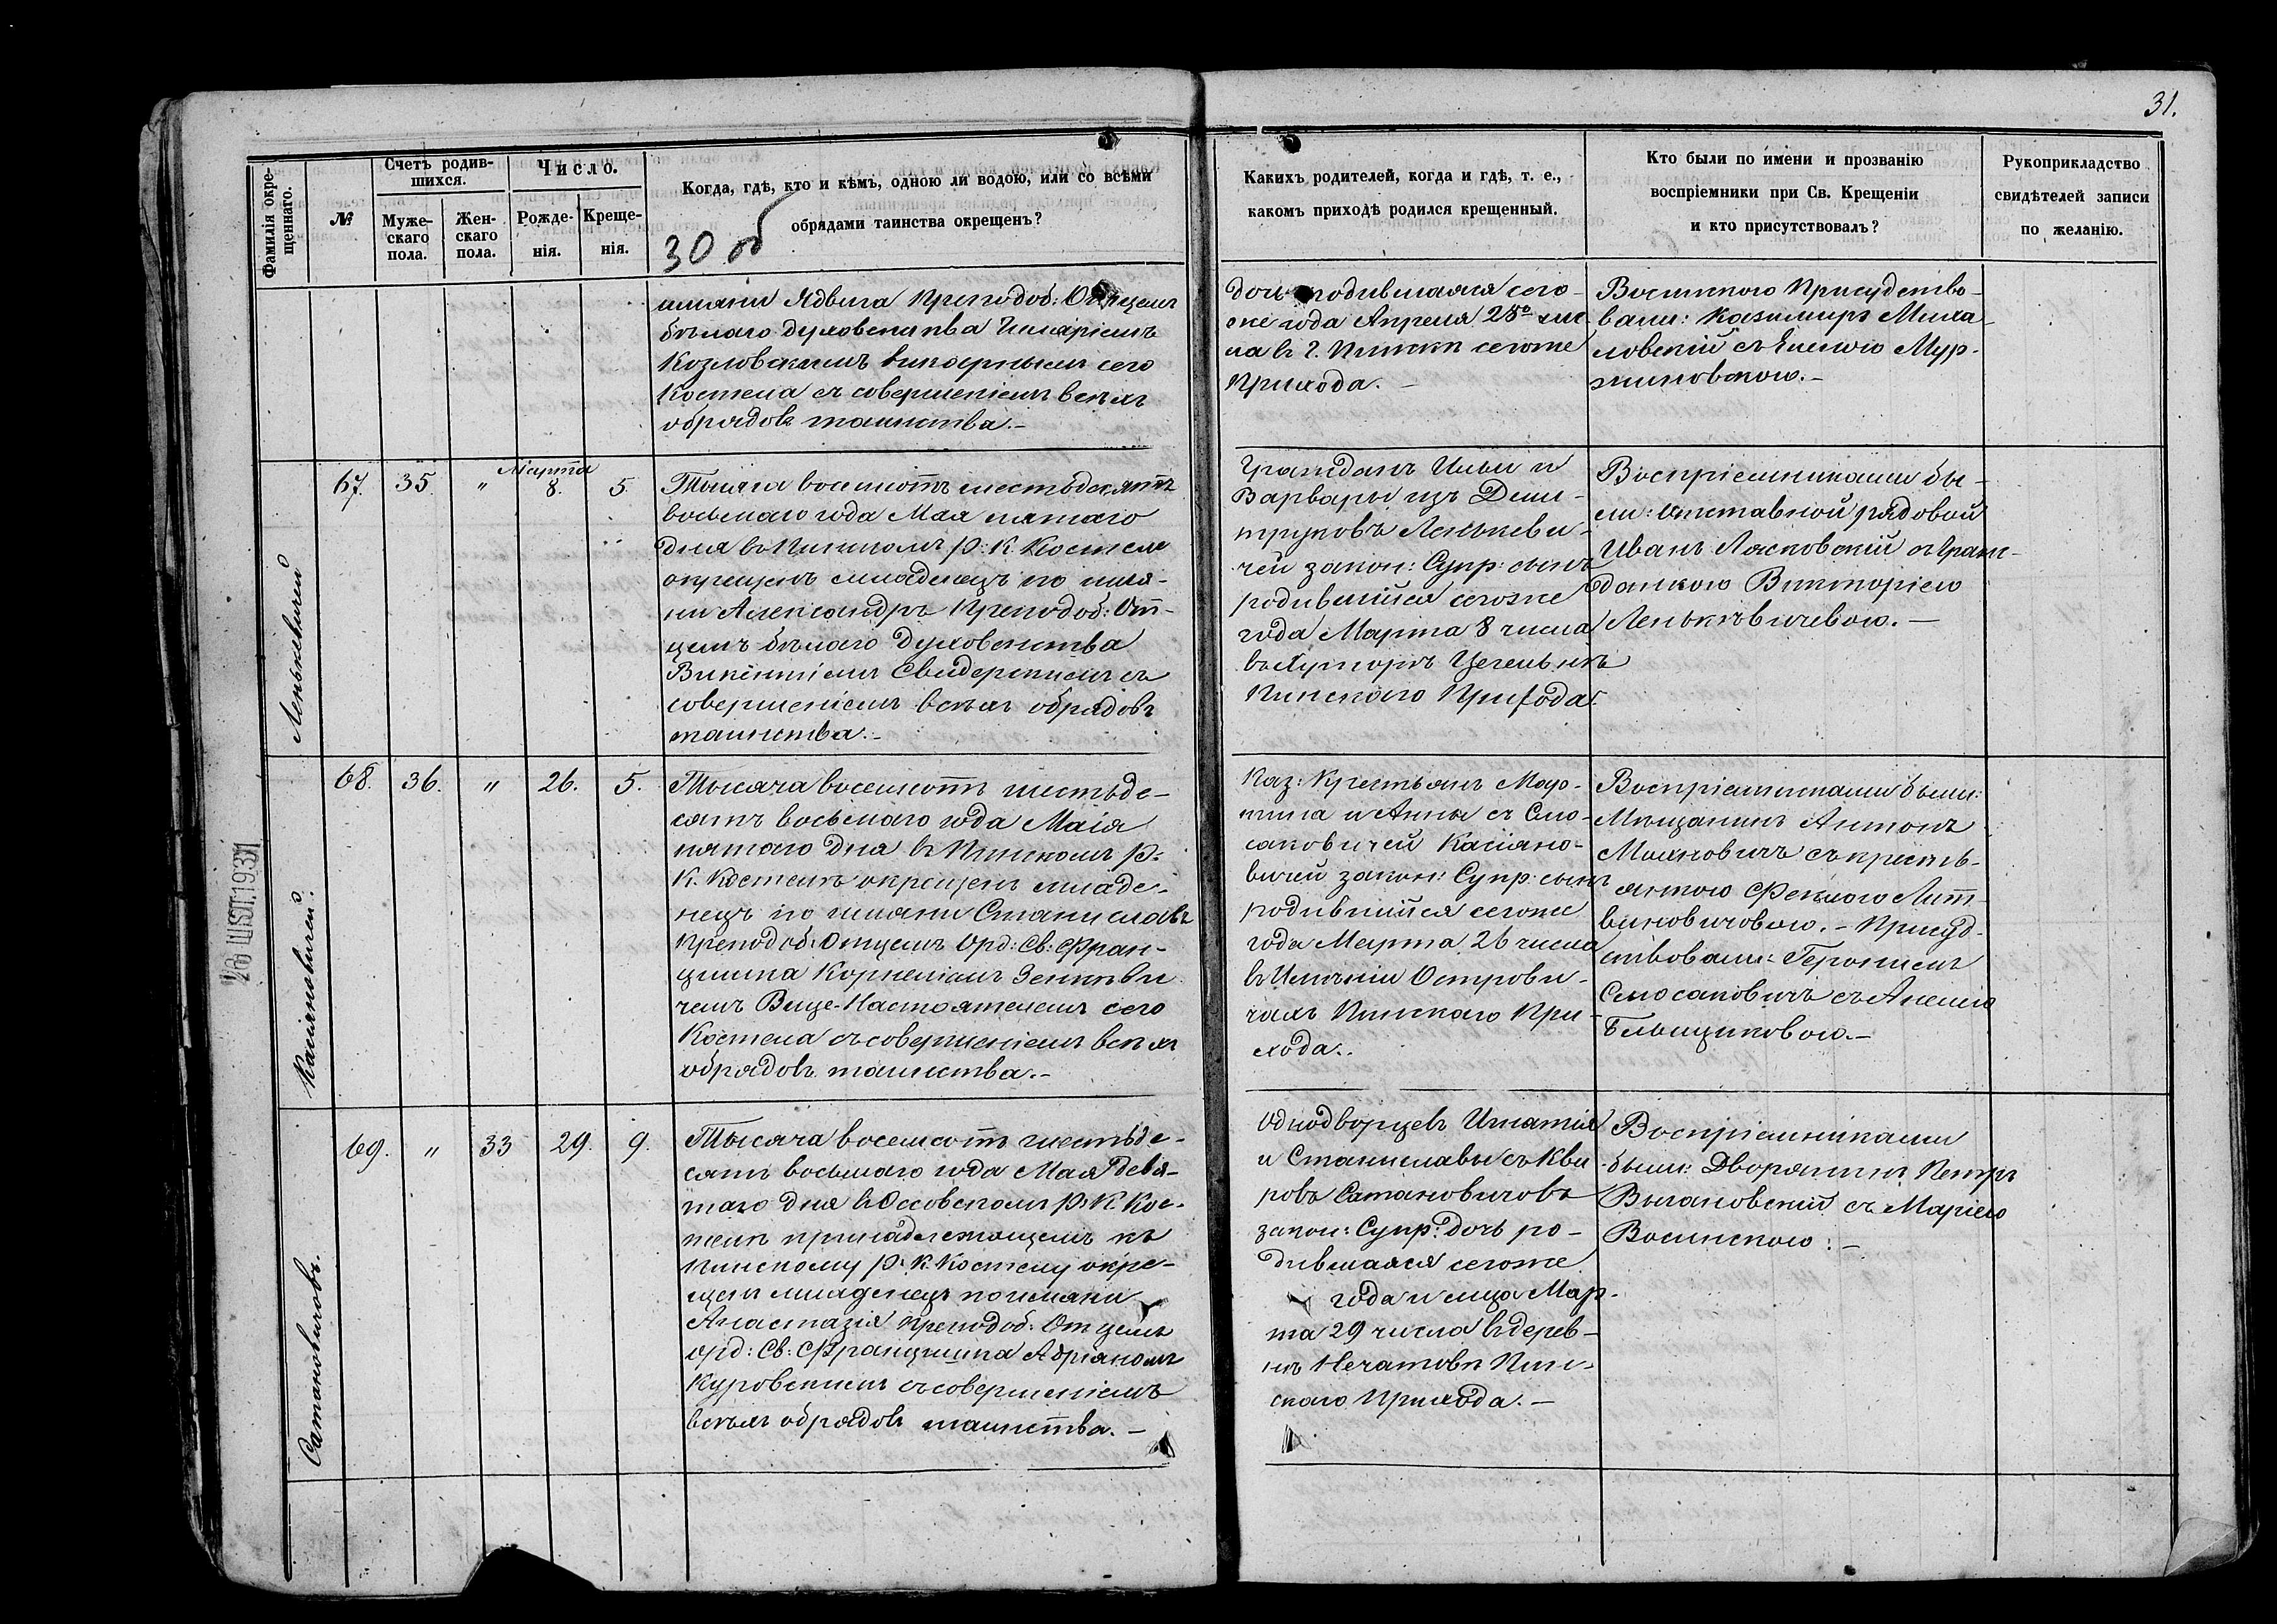 31.
Фамилія окре-
щеннаго.
№
Счетъ родив-
шихся.
Муже-
скаго
пола.
Жен-
скаго
пола.
Число.
Рожде-
нія.
Креще-
нія.
Когда, гдѣ, кто и кѣмъ, одною ли водою, или со всѣми
обрядами таинства окрещенъ?
30 об
Какихъ родителей, когда и гдѣ, т. е.,
какомъ приходѣ родился крещенный.
Кто были по имени и прозванію
воспріемники при Св. Крещеніи
и кто присутствовалъ?
Рукоприкладство
свидѣтелей записи
по желанію.
имяни Ядвига Преподоб: Отцемъ
бѣлаго духовенства Иларіемъ
Козловскимъ Викарнымъ сего
Костела съ совершеніемъ всѣхъ
обрядовъ таинства.-
дочь родившаяся сего-
же года Апреля 28го чис-
ла въ г. Пинскѣ сегоже
Прихода. -
Воинского Присудство-
вали: Казимиръ Миха-
ловскій съ
Ленькевичей
67. 35. " Марта 8. 5.
Тысяча восемьсотъ шестьдесятъ
восьмаго года Мая пятаго
дня въ Пинскомъ Р: К. Костеле
окрещенъ младенецъ по имя-
ни Александръ Преподоб: От-
цемъ бѣлаго Духовенства
Викентіемъ Свидерскимъ съ
совершеніемъ всѣхъ обрядовъ
таинства.-
Гражданъ Ильи и
Варвары изъ Дми-
труковъ Ленькеви-
чей закон: Супр: сынъ
родившійся сегоже
года Марта 8 числа
въ Хуторѣ Цегельнѣ
Пинскаго Прихода.
Воспріемниками бы-
ли: отставной рядовой
Иванъ Лясковскій съ Граж-
данкою Викторіею
Ленькѣвичевою. -
Касіяновичей.
68. 36. " 26. 5.
Тысяча восемсотъ шестьде-
сятъ восьмаго года Маія
пятаго дня въ Пинскомъ Р:
К. Костелѣ окрещенъ младе-
нецъ по имяни Станиславъ
Преподоб: Отцемъ Орд: Св: Фран-
цишка Корнеліемъ Зенкѣви-
чемъ Вице-Настоятелемъ сего
Костела съ совершеніемъ всѣхъ
обрядовъ таинства.-
Каз: Крестьянъ Мар-
тина и Анны съ Сло-
саковичей Касіяно-
вичей закон: Супр: сынъ
родившійся сегоже
года Марта 26 числа
въ Имѣніи Острови-
чахъ Пинскаго При-
хода.
Воспріемниками были:
Мѣщанинъ Антонъ
съ кресть-
янкою Феклою Лит-
виновичовою. - Присуд-
ствовали: Геронимъ
съ
Бѣльщиковою.-
26 1937
Сатановичовъ.
69. " 33 29. 9.
Тысяча восемсотъ шестьде-
сятъ восьмаго года Мая девя-
таго дня въ Оссовскомъ Р. К. Кос-
телѣ принадлежащемъ къ
Пинскому Р. К. Костелу окре-
щенъ младенецъ по имяни
Анастазія Преподоб: Отцемъ
орд: Св: Францишка Адріяномъ
Куровскимъ съ совершеніемъ
всѣхъ обрядовъ таинства. -
Однодворцевъ Игнатія
и Станиславы съ Кви-
ровъ Сатановичовъ
закон: Супр: дочь ро-
дившаяся сегоже
года и мца Мар-
та 29 числа въ дерев-
нѣ Нечатовѣ Пин-
скаго Прихода. -
Воспріемниками
были: Дворянинъ Петръ
Выгановскій съ Маріею
Волинскою: -